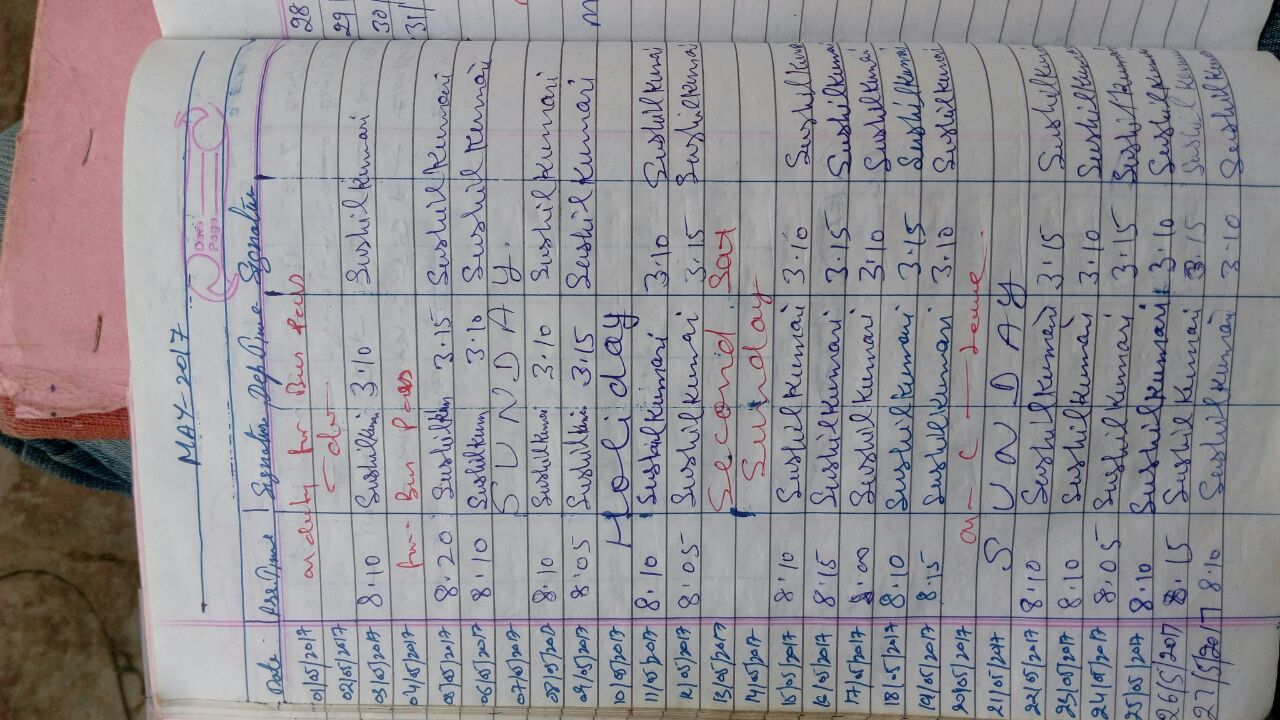 28
29
30/
31/
MAY-2017
Date
Page
Date Arr Time Signature Dep Time Signature
01/05/2017 on duty for Bus Pass
02/05/2017 - do -
03/05/2017 8.10 Sushil Kumari 3.10 Sushil Kumari
04/05/2017 for Bus Pass
05/05/2017 8.20 Sushil Kum 3.15 Sushil Kumari
06/05/2017 8.10 Sushil Kum 3.10 Sushil Kumari
07/05/2017 SUNDAY.
08/05/2017 8.10 Sushil Kumai 3.10 Sushil Kumari
09/05/2017 8.05 Sushil Kumai 3.15 Sushil Kumari
10/05/2017 Holiday
11/05/2017 8.10 Sushil Kumari 3.10 Sushil Kumari
12/05/2017 8.05 Sushil Kumari 3.15 Sushil Kumari
13/05/2017 Second Sat
14/05/2017 Sunday
15/05/2017 8.10 Sushil Kumari 3.10 Sushil Kuma
16/05/2017 8.15 Sushil Kumari 3.15 Sushil Kumari
17/05/2017 8.00 Sushil Kumari 3.10 Sushil Kumai
18/05/2017 8.10 Sushil Kumari 3.15 Sushil Kumai
19/05/2017 8.15 Sushil Kumari 3.10 Sushil Kumari
20/05/2017 on - C - Leave.
21/05/2017 SUNDAY
22/05/2017 8.10 Sushil Kumari 3.15 Sushil Kumari
23/05/2017 8.10 Sushil Kumari 3.10 Sushil Kuma
24/05/2017 8.05 Sushil Kumari 3.15 Sushil Kumari
25/05/2017 8.10 Sushil Kumari 3.10 Sushil Kumai
26/5/2017 8.15 Sushil Kumari 3.15 Sushil Kumai
27/5/2017 8.10 Sushil Kumari 3.10 Sushil Kumai